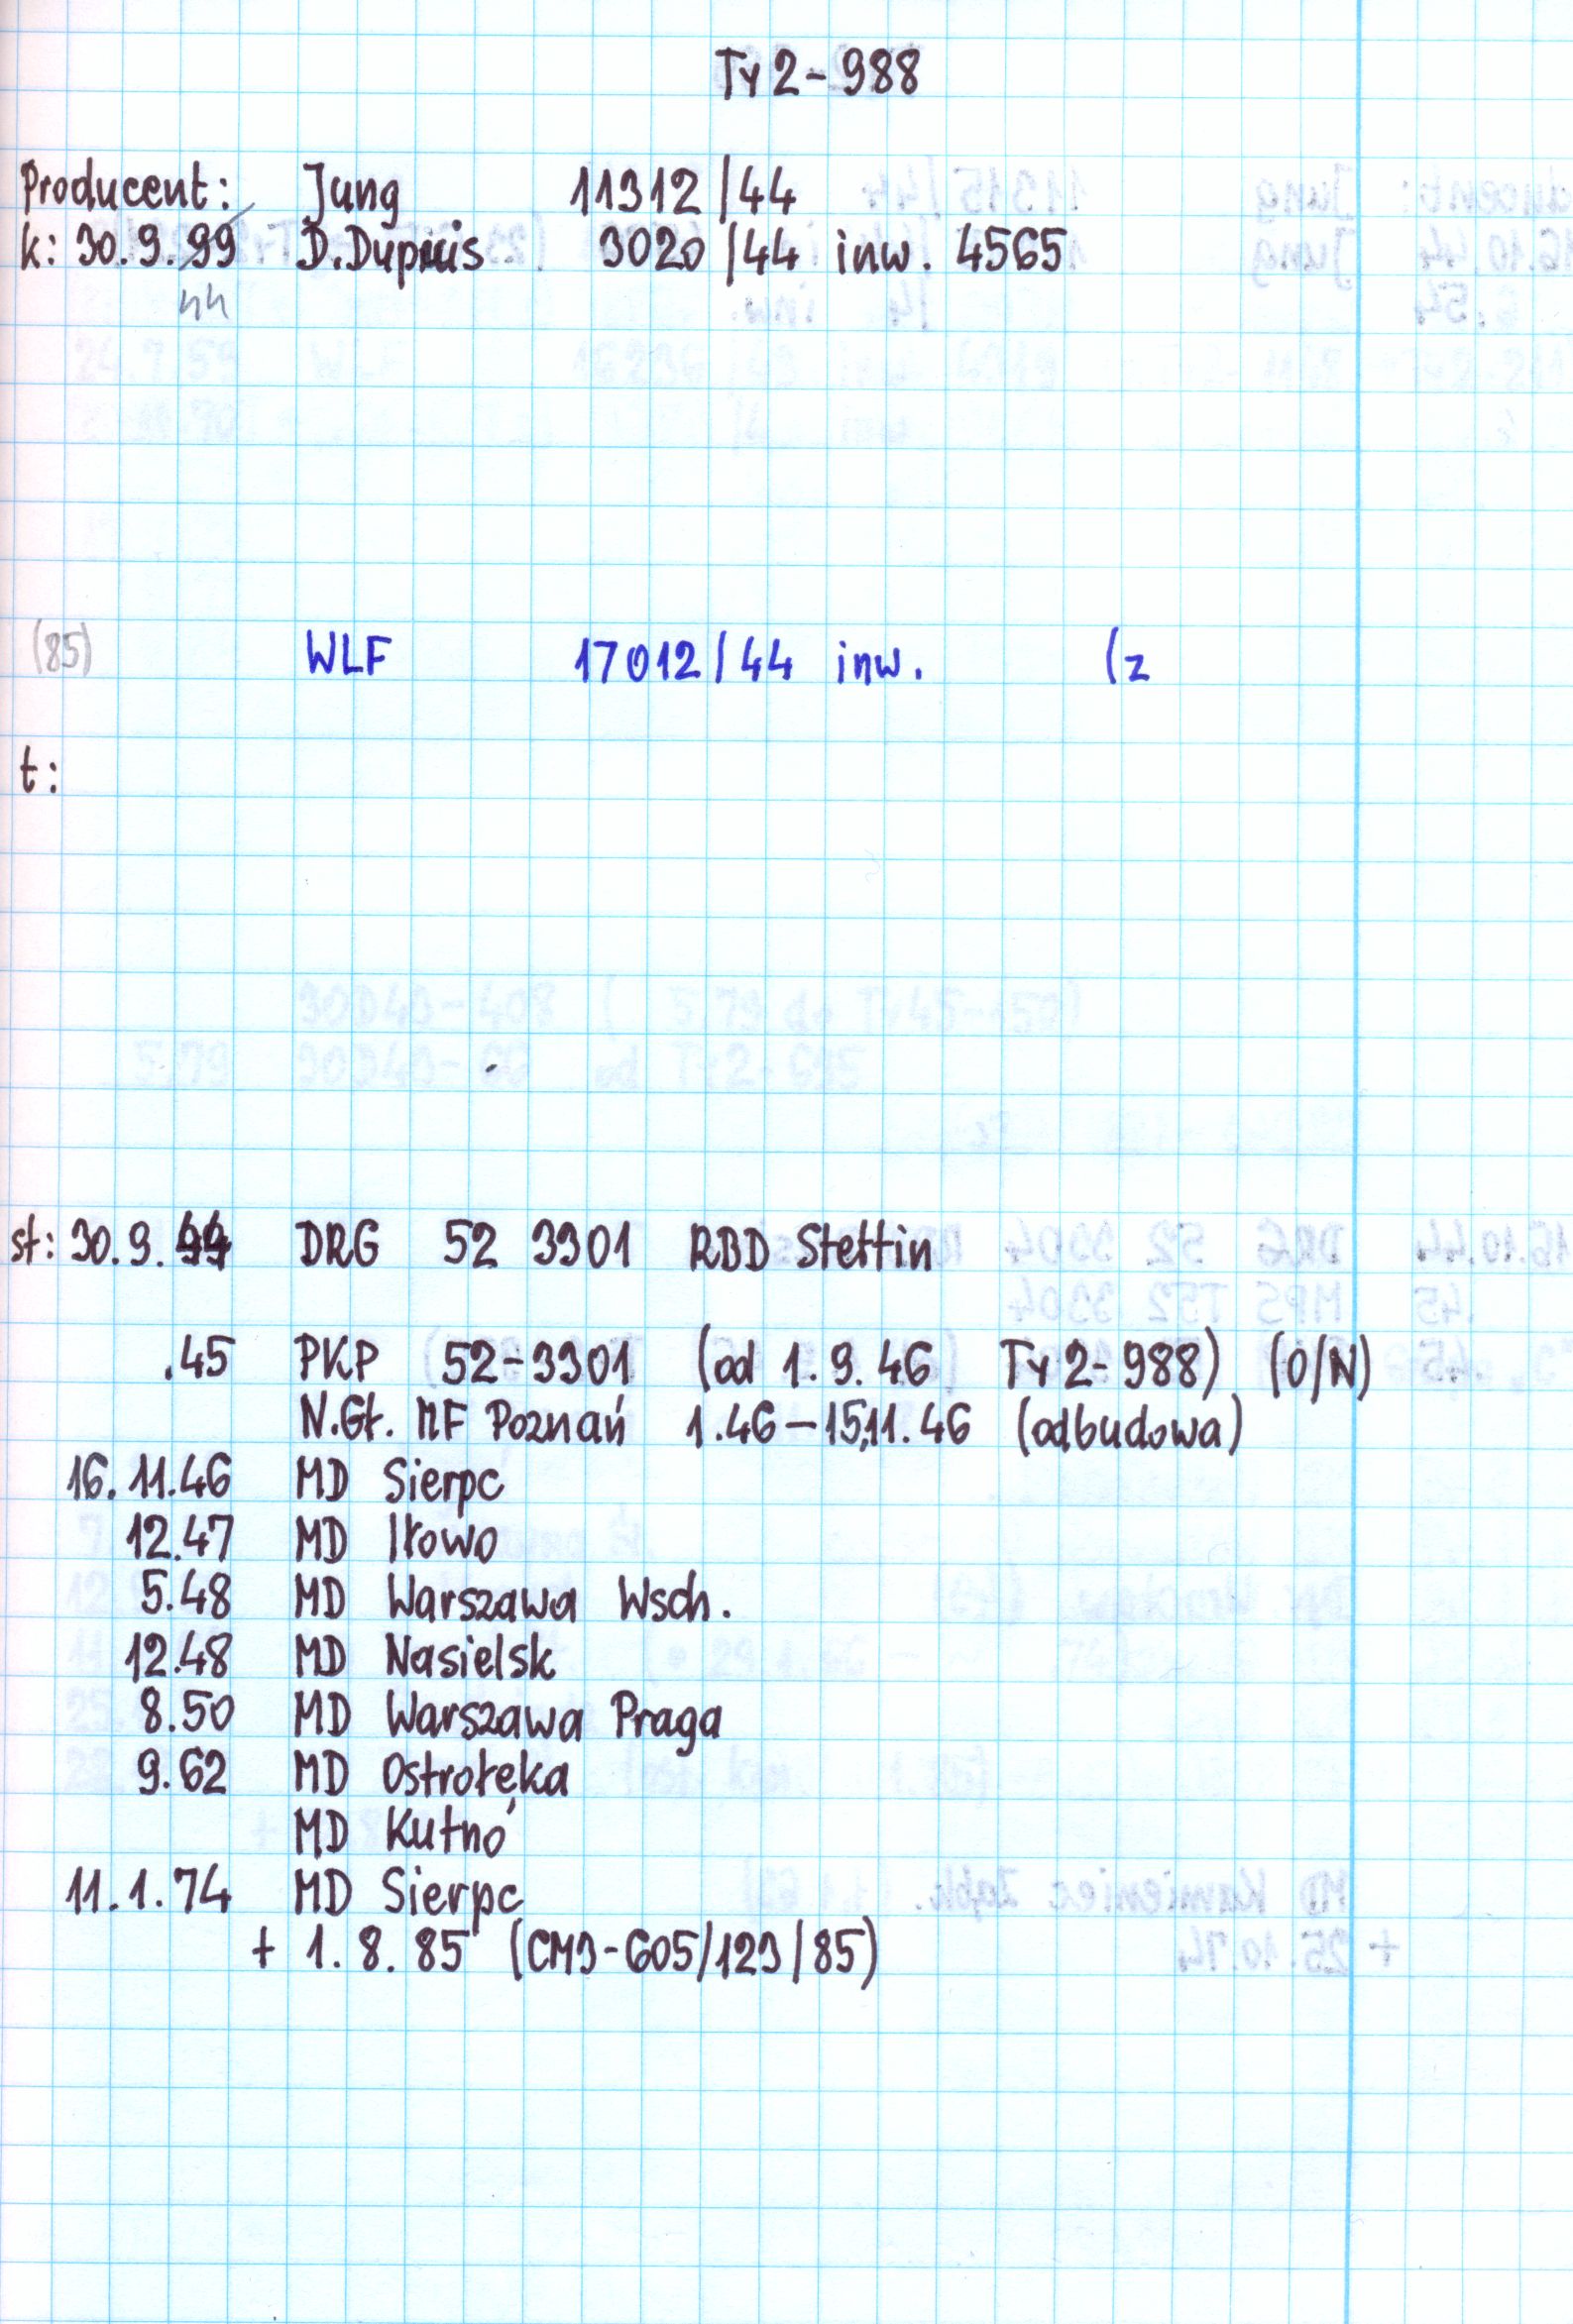 Ty2-988
Producent: Jung 11312/44
k: 30.9.99 D.Dupuis 3020/44 inw. 4565
44
(85) WLF 17012/44 inw. (z
t:
st: 30.9.44 DRG 52 3301 RBD Stettin
.45 PKP 52-3301 (od 1.9.46 Ty2-988) (O/N)
N.Gł. MF Poznań 1.46-15.11.46 (odbudowa)
16.11.46 MD Sierpc
12.47 MD Iłowo
5.48 MD Warszawa Wsch.
12.48 MD Nasielsk
8.50 MD Warszawa Praga
9.62 MD Ostrołęka
MD Kutno
11.1.74 MD Sierpc
+ 1.8.85 (CM3-605/123/85)